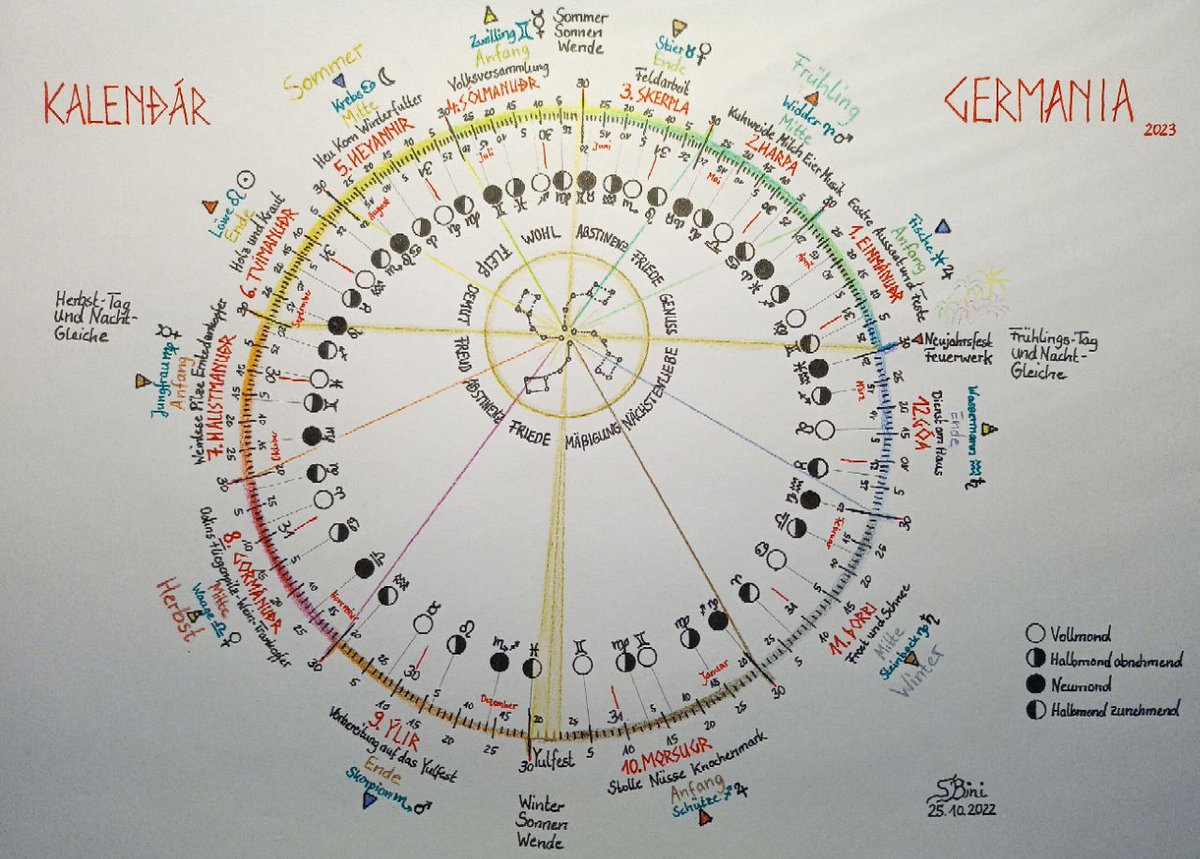 KALENÐÁR
GERMANIA
2023
Sommer
Sonnen
Wende
Zwilling ♊
Anfang
Volksversammlung
4. SÓLMANUÐR
Stier ♉ ♀
Ende
Feldarbeit
3. SKERPLA
Frühling
Widder ♈ ♂
Mitte
Kuhweide Milch Eier Musik
2. HARPA
Fische ♓ ♃
Anfang
Eostre Aussaat und Feste
1. EINMÁNUÐR
Neujahrsfest
Feuerwerk
Frühlings-Tag
und Nacht-
Gleiche
Wassermann ♒ ♄
Ende
Dienst am Haus
12. GÓA
Winter
Steinbock ♑ ♄
Mitte
Frost und Schnee
11. ÞORRI
10. MØRSUGR
Stolle Nüsse Knochenmark
Anfang
Schütze ♐ ♃
Yulfest
Winter
Sonnen
Wende
9. ÝLIR
Vorbereitung auf das Yulfest
Ende
Skorpion ♏ ♂
8. GORMANUÐR
Odins Fliegenpilz-Wein-Trankopfer
Mitte
Waage ♎ ♀
Herbst
7. HAUSTMANUÐR
Weinlese Pilze Erntedankopfer
Anfang
Jungfrau ♍
Herbst-Tag
und Nacht-
Gleiche
6. TVIMANUÐR
Holz und Kraut
Ende
Löwe ♌ ☉
5. HEYANNIR
Heu Korn Winterfutter
Mitte
Krebs ♋ ☾
Sommer
Juni
Mai
April
März
Februar
Januar
Dezember
November
Oktober
September
August
Juli
WOHL
ABSTINENZ
FRIEDE
GENUSS
NÄCHSTENLIEBE
MÄßIGUNG
FRIEDE
ABSTINENZ
FREUD
DEMUT
FLEIß
Vollmond
Halbmond abnehmend
Neumond
Halbmond zunehmend
S. Bini
25.10.2022